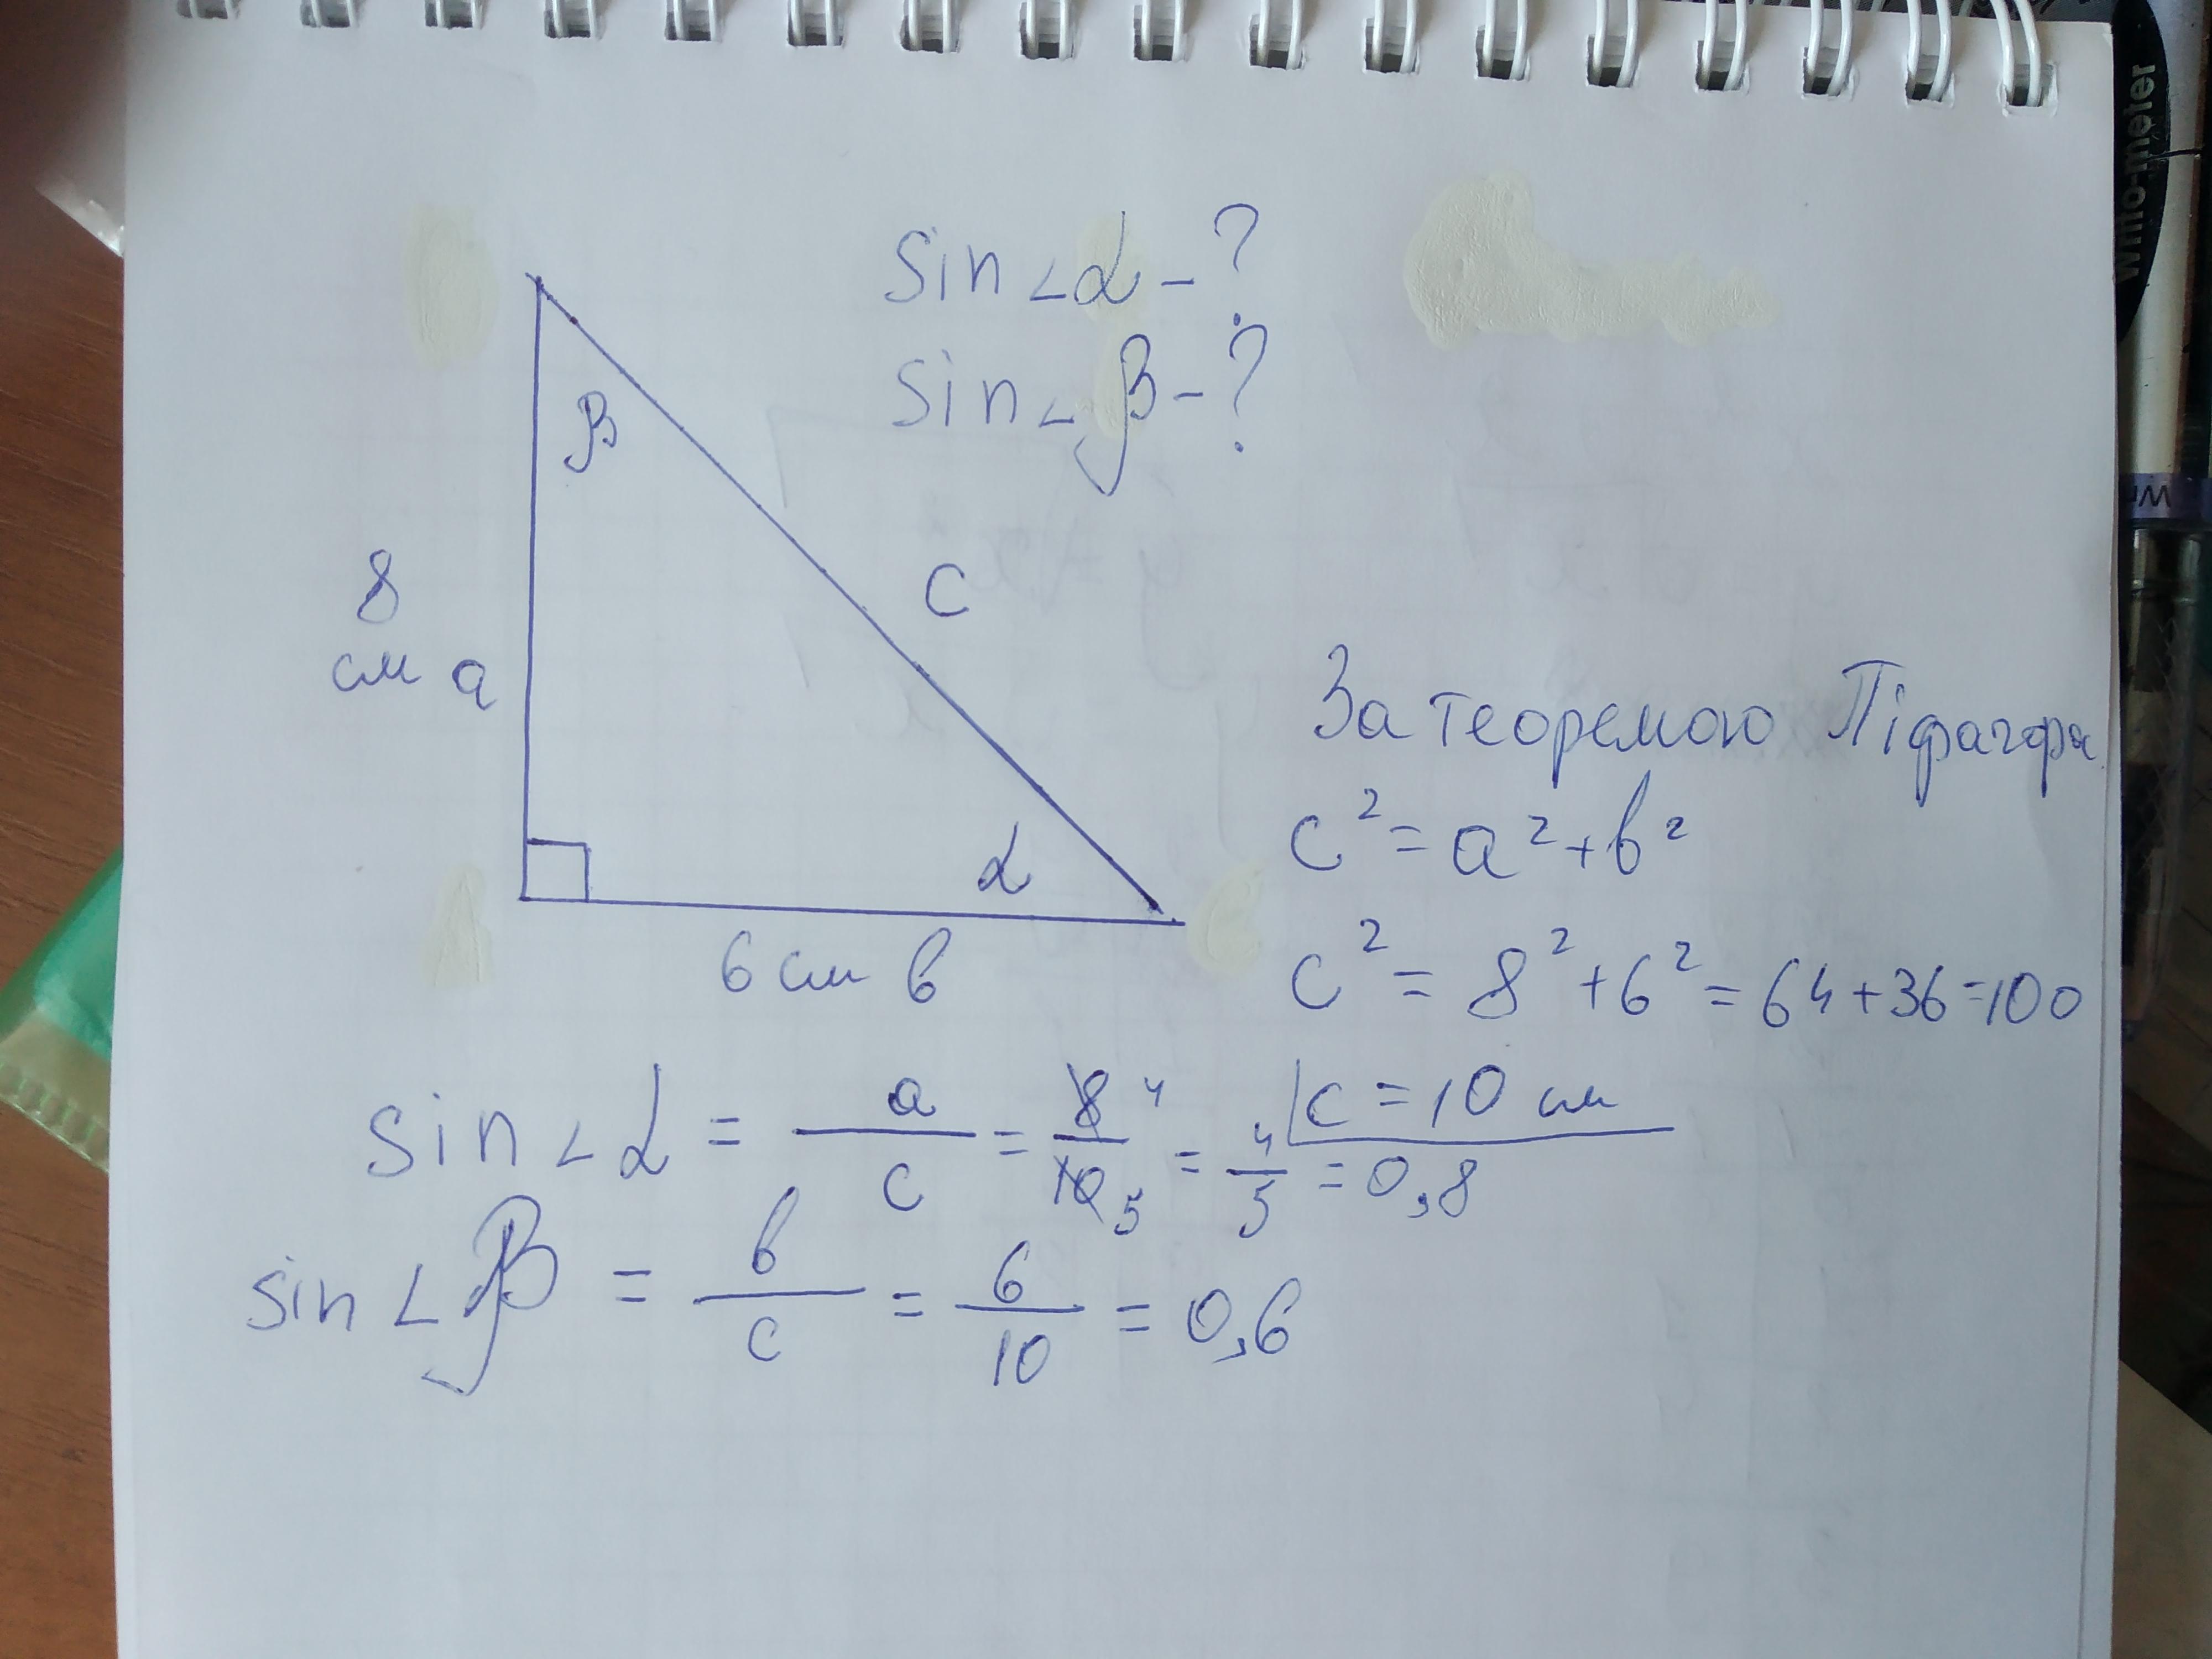 sin ∠α - ?
sin ∠β - ?
β
8
см a
c
α
6 см b
За теоремою Піфагора
c² = a² + b²
c² = 8² + 6² = 64 + 36 = 100
c = 10 см
sin ∠α = a/c = 8/10 = 4/5 = 0,8
4
5
sin ∠β = b/c = 6/10 = 0,6
who-meter